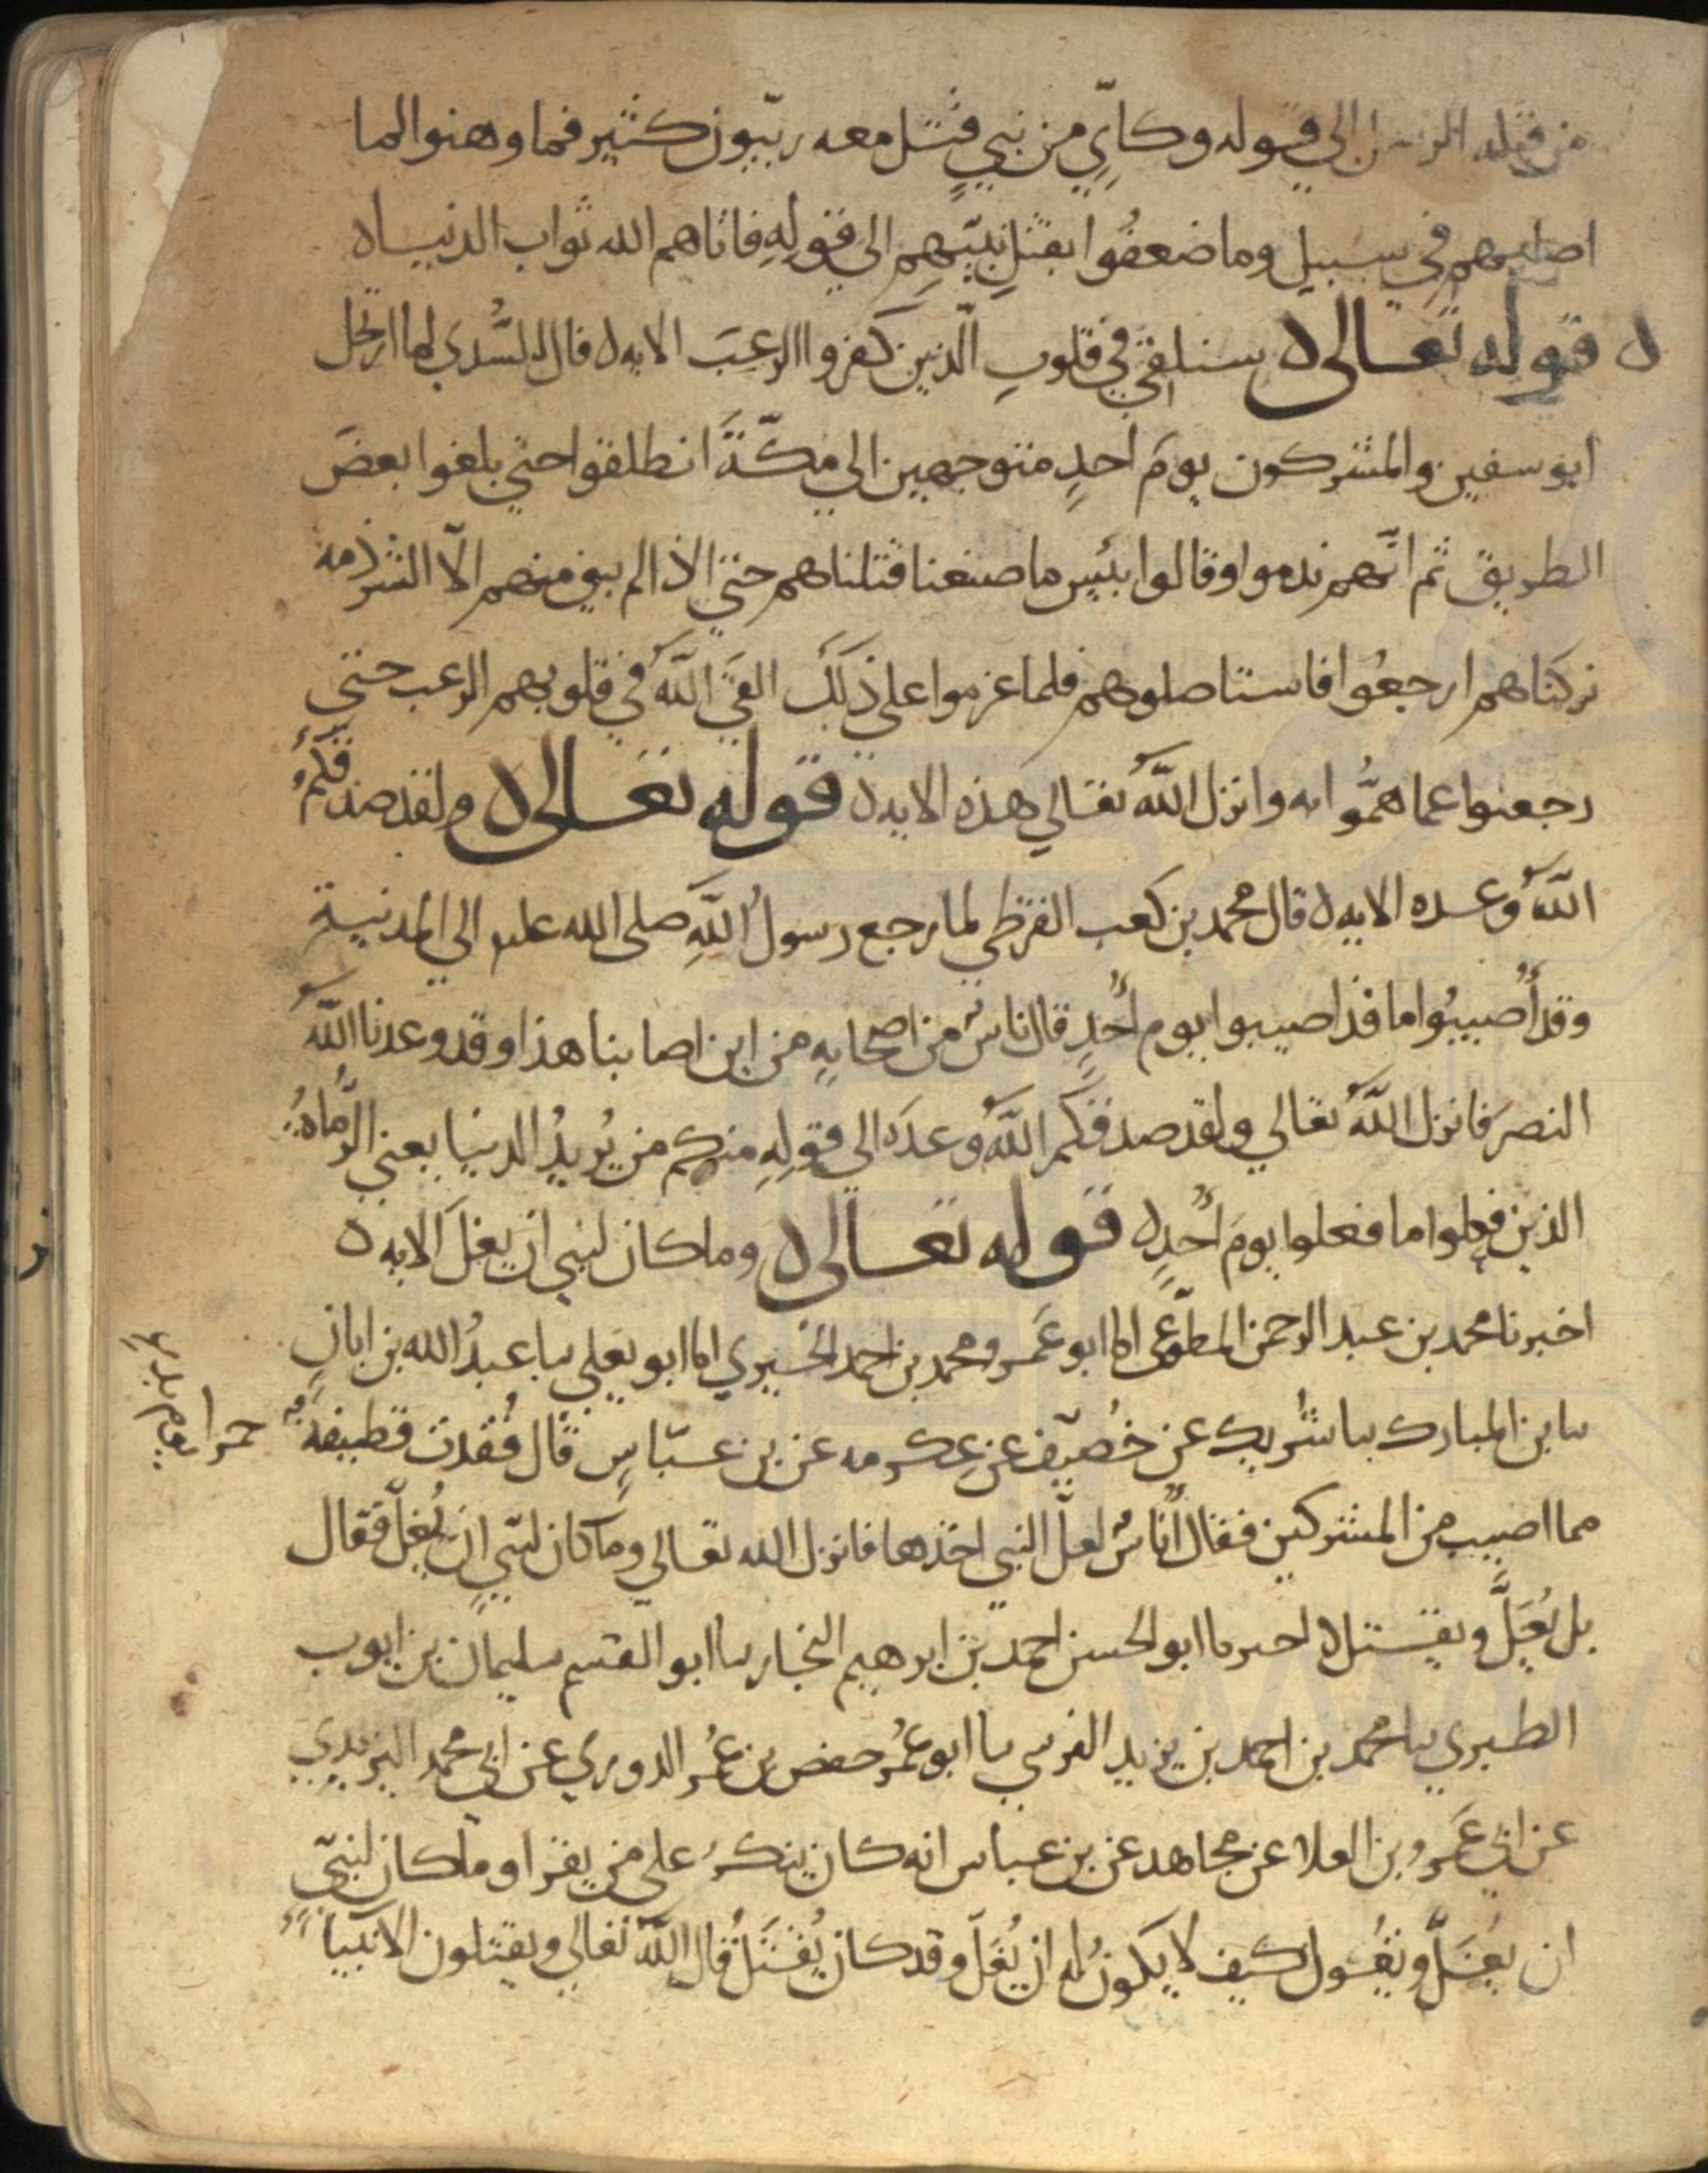 من قبله الرسل الى قوله وكايّ من نبي قتل معه ربّيون كثير فما وهنوا لما
اصابهم في سبيل وما ضعفُوا بقتل نبيّهم الي قولِهِ فاتاهم الله ثواب الدنيا ه
ه قوله تعالى ه سنلقي في قلوبِ الّذين كفروا الرعبَ الايه ه قال السُّدي لما ارتحل
ابو سفين والمشركون يومَ احدٍ متوجهين الي مكّةَ انطلقوا حتي بلغوا بعضَ
الطريق ثم انّهم ندموا وقالوا بئيس ما صنعنا قتلناهم حتي اذا لم يبق منهم الّا الشرذمه
تركناهم ارجعُوا فاستاصلوهم فلما عزموا علي ذلكَ القَي اللّهُ في قلوبهم الرعب حتي
رجعوا عما همُّوا به وانزل اللّهُ تعالي هذه الايه ه قوله تعالى ه ولقد صدقكمُ
اللّهُ وعده الايه ه قال محمد بن كعب القرظي لما رجع رسولُ اللّهِ صلى الله عليه الي المدنية
وقد أُصيبُوا ما قد اصيبوا يوم اُحُدٍ قال ناسٌ من اصحابهِ من اين اصابنا هذا وقد وعدنا اللّهُ
النصرَ فانزل اللّهُ تعالي ولقد صدقكم اللّهُ وعدَه الي قولِهِ منكم من يُريدُ الدنيا يعني الرُّماهُ
الذين فعلوا ما فعلوا يومَ اُحُدٍ ه قوله تعالى ه وما كان لنبي ان يغلَ الايه ه
اخبرنا محمد بن عبد الرحمن المطوّعي انا ابو عَمرو محمد بن احمد الحيري انا ابو يعلي نا عبدُ الله بن ابانِ
نا بن المبارك نا شريك عن خُصَيف عن عِكرمه عن بن عبّاسٍ قال فُقدت قطيفةٌ حمرا
مما اصيب من المشركين فقال اُناسٌ لعلّ النبي اخذها فانزل الله تعالي وما كان لنبي ان يُغلّ فقال
بل يُغَلَّ ويقتل ه اخبرنا ابو الحسن احمد بن ابرهيم النجار نا ابو القسم سليمان بن ايوب
الطبري نا محمد بن احمد بن يزيد النرسي نا ابو عُمر حفص بن عُمر الدوري عن ابي محمد اليزيدي
عن ابي عَمرو بن العلا عن مجاهد عن بن عباس انه كان ينكرُ علي من يقرا وما كان لنبيّ
ان يُغَلَّ ويقُول كيف لا يكونُ له ان يُغَلّ وقد كان يُقتَلُ قال اللّهُ تعالي ويقتلون الانبيا